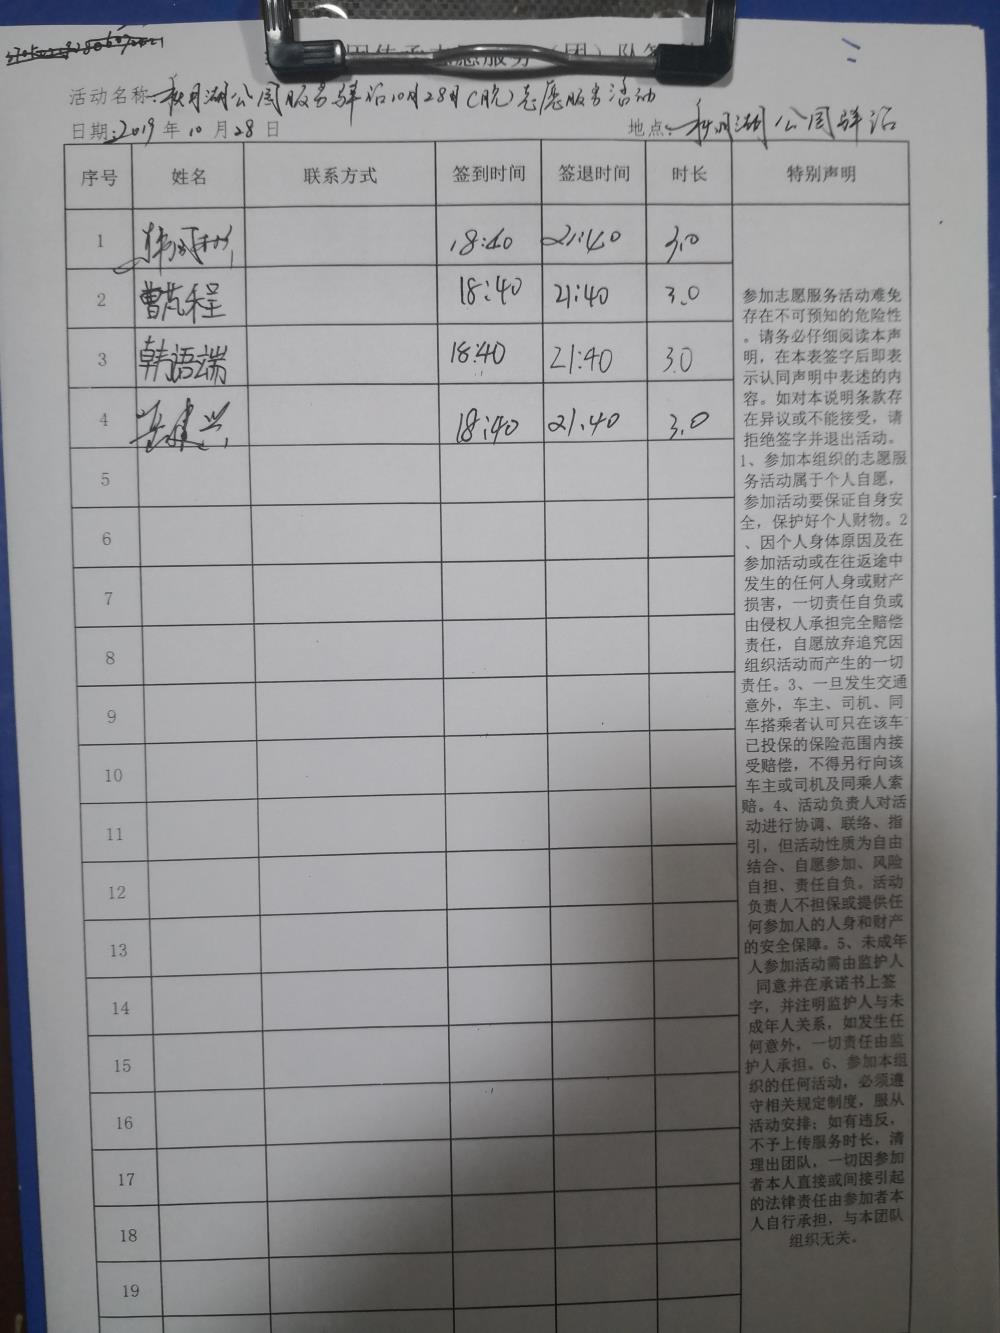 志愿服务（团）队
活动名称：秋月湖公园服务驿站10月28日（晚）志愿服务活动
日期：2019年10月28日 地点：秋月湖公园驿站
序号 姓名 联系方式 签到时间 签退时间 时长 特别声明
1 18:40 21:40 3.0
2 曹芃程 18:40 21:40 3.0
3 韩语端 18:40 21:40 3.0
4 18:40 21:40 3.0
5
6
7
8
9
10
11
12
13
14
15
16
17
18
19
参加志愿服务活动难免
存在不可预知的危险性
。请务必仔细阅读本声
明，在本表签字后即表
示认同声明中表述的内
容。如对本说明条款存
在异议或不能接受，请
拒绝签字并退出活动。
1、参加本组织的志愿服
务活动属于个人自愿，
参加活动要保证自身安
全，保护好个人财物。2
、因个人身体原因及在
参加活动或在往返途中
发生的任何人身或财产
损害，一切责任自负或
由侵权人承担完全赔偿
责任，自愿放弃追究因
组织活动而产生的一切
责任。3、一旦发生交通
意外，车主、司机、同
车搭乘者认可只在该车
已投保的保险范围内接
受赔偿，不得另行向该
车主或司机及同乘人索
赔。4、活动负责人对活
动进行协调、联络、指
引，但活动性质为自由
结合、自愿参加、风险
自担、责任自负。活动
负责人不担保或提供任
何参加人的人身和财产
的安全保障。5、未成年
人参加活动需由监护人
同意并在承诺书上签
字，并注明监护人与未
成年人关系，如发生任
何意外，一切责任由监
护人承担。6、参加本组
织的任何活动，必须遵
守相关规定制度，服从
活动安排；如有违反，
不予上传服务时长，清
理出团队，一切因参加
者本人直接或间接引起
的法律责任由参加者本
人自行承担，与本团队
组织无关。